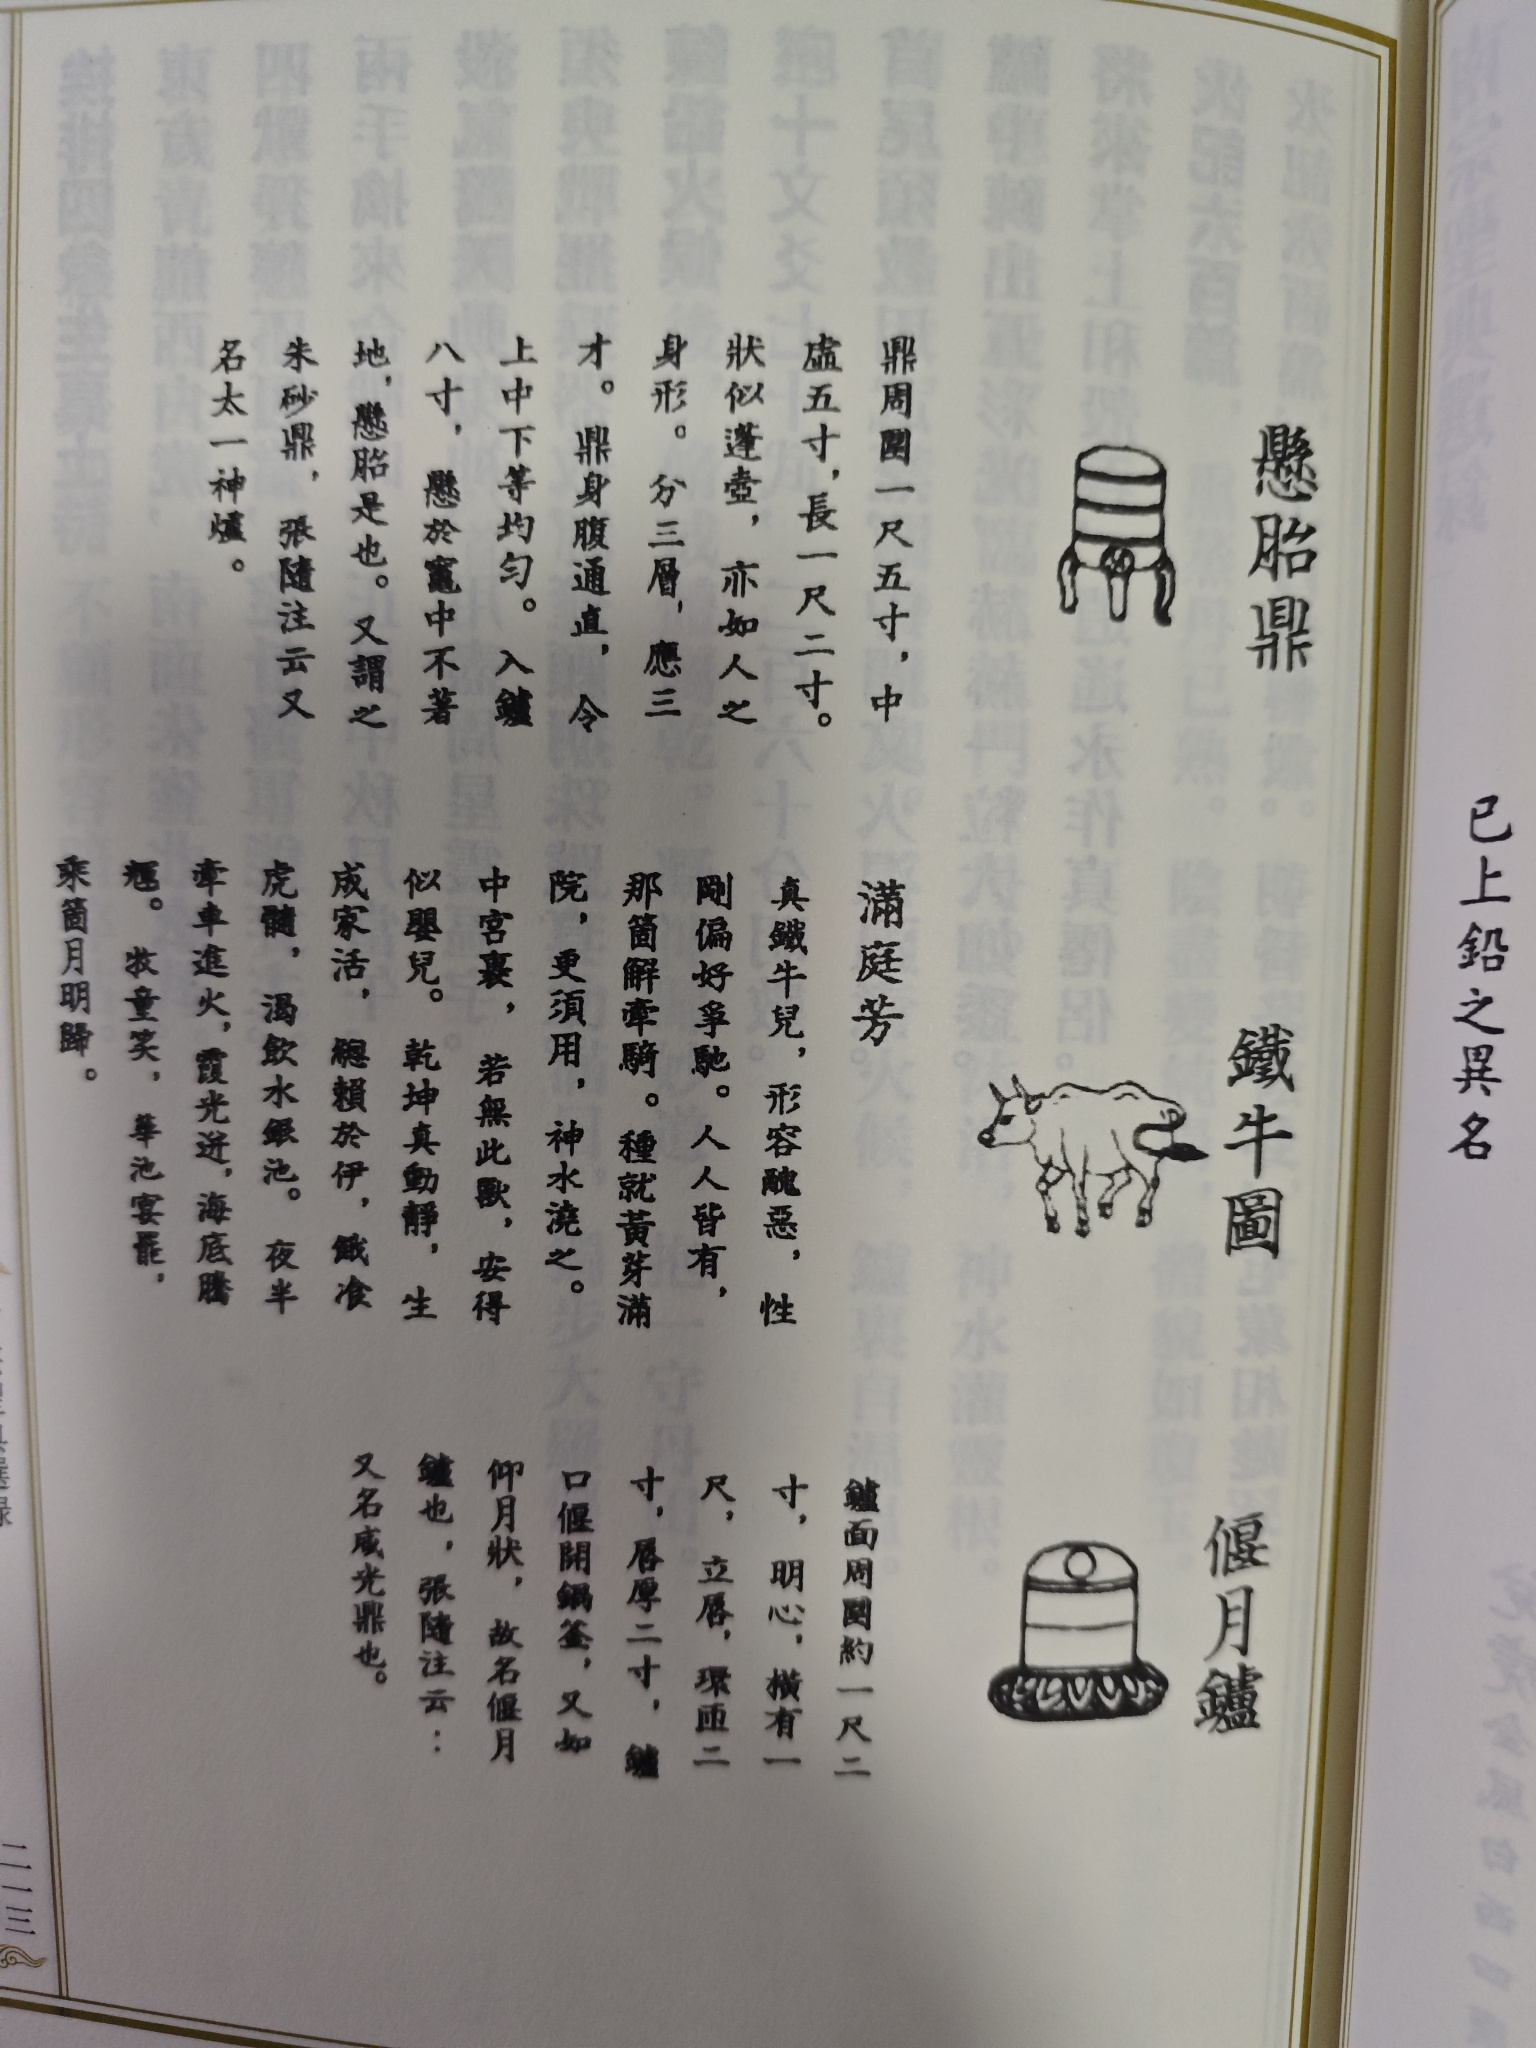 已上鉛之異名
懸胎鼎
鼎周圍一尺五寸，中
虛五寸，長一尺二寸。
狀似蓬壺，亦如人之
身形。分三層，應三
才。鼎身腹通直，令
上中下等均勻。入鑪
八寸，懸於竈中不著
地，懸胎是也。又謂之
朱砂鼎，張隨注云又
名太一神爐。
鐵牛圖
滿庭芳
真鐵牛兒，形容醜惡，性
剛偏好爭馳。人人皆有，
那箇解牽騎。種就黃芽滿
院，更須用，神水澆之。
中宮裏，若無此獸，安得
似嬰兒。乾坤真動靜，生
成家活，總賴於伊，餓飡
虎髓，渴飲水銀池。夜半
牽車進火，霞光迸，海底騰
牧童笑，華池宴罷，
乘箇月明歸。
偃月鑪
鑪面周圍約一尺二
寸，明心，橫有一
尺，立唇，環匝二
寸，唇厚二寸，鑪
口偃開鍋釜，又如
仰月狀，故名偃月
鑪也，張隨注云：
又名威光鼎也。
二一三